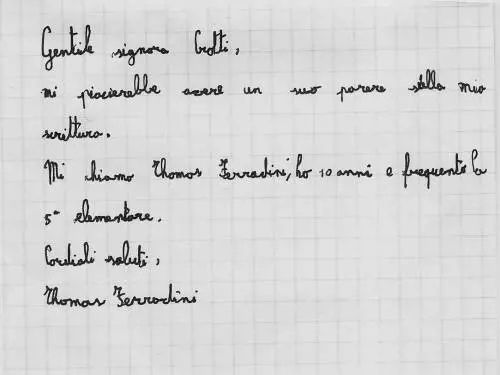 Gentile signora Crotti,
mi piacierebbe avere un suo parere stulla mia
scrittura.
Mi chiamo Thomas Ferradini, ho 10 anni e frequento la
5ª elementare.
Cordiali saluti,
Thomas Ferradini